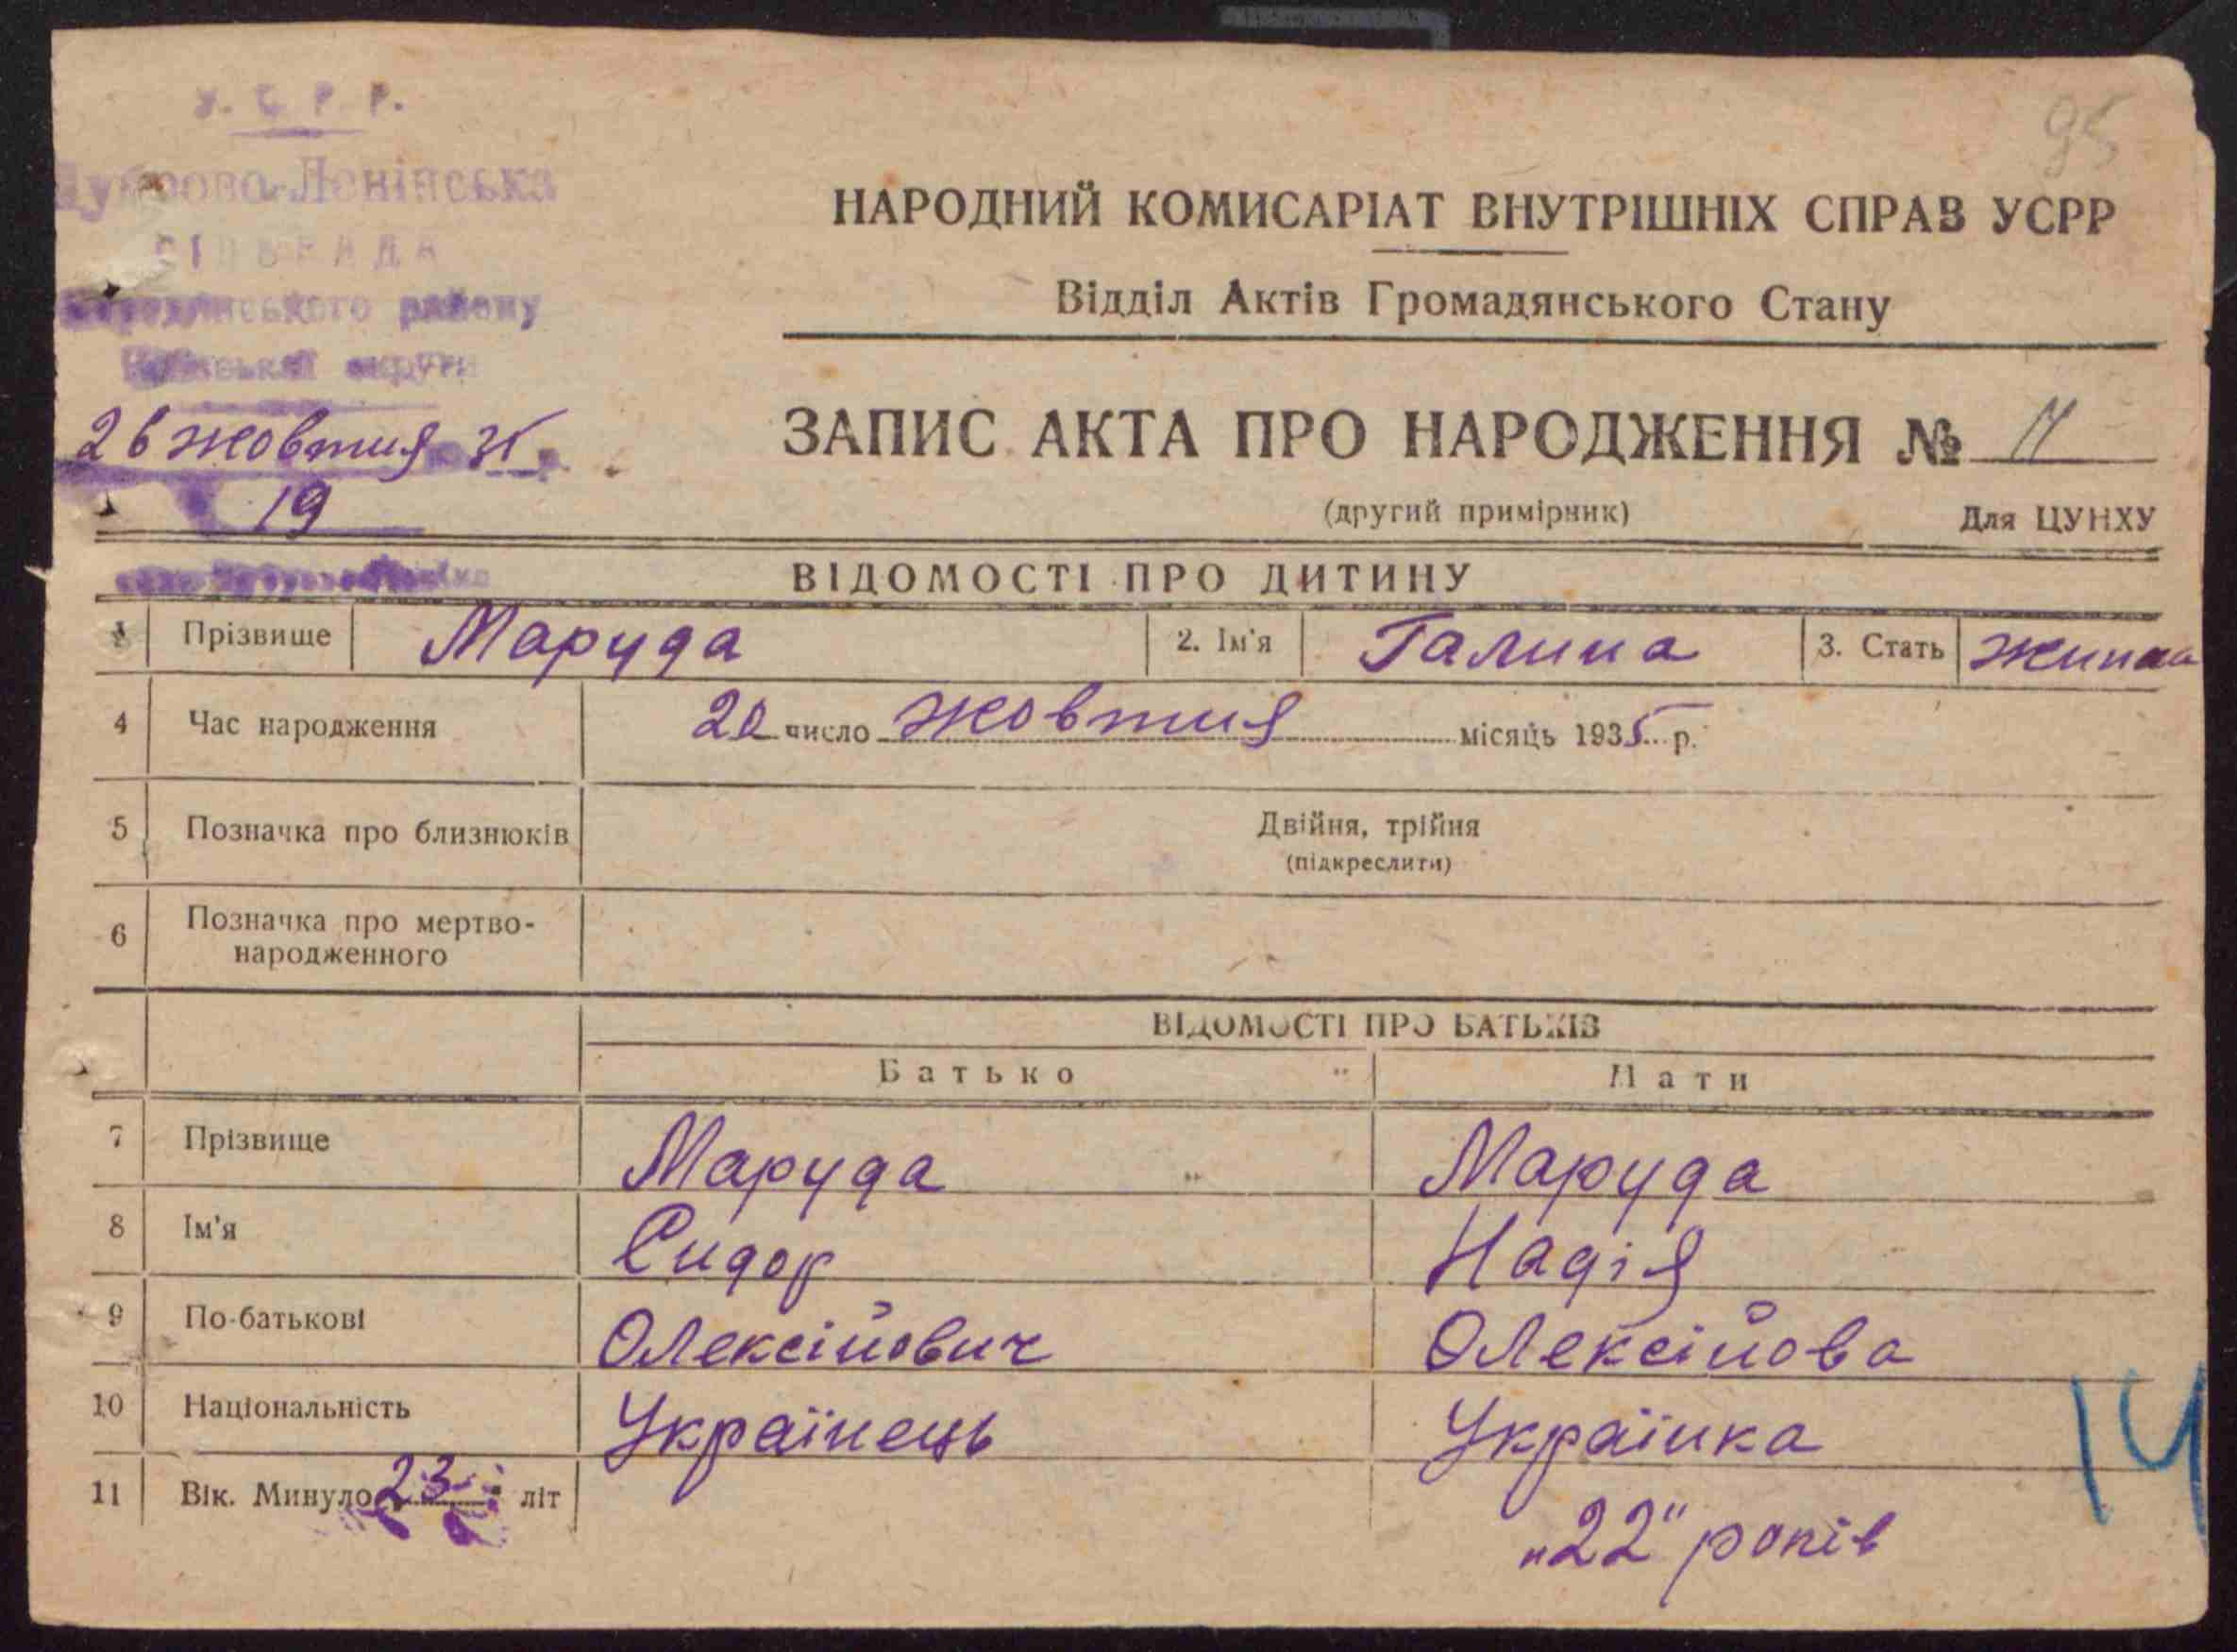 У. С. Р. Р.
Дуброво-Ленінська
СІЛЬРАДА
району
округи
26 жовтня 35 р.
19
95
НАРОДНИЙ КОМИСАРІАТ ВНУТРІШНІХ СПРАВ УСРР
Відділ Актів Громадянського Стану
ЗАПИС АКТА ПРО НАРОДЖЕННЯ №
(другий примірник) Для ЦУНХУ
ВІДОМОСТІ ПРО ДИТИНУ
Прізвище Маруда 2. Ім'я Галина 3. Стать
4 Час народження 20 число жовтня місяць 1935 р.
5 Позначка про близнюків Двійня, трійня
(підкреслити)
6 Позначка про мертво-
народженного
ВІДОМОСТІ ПРО БАТЬКІВ
Батько Мати
7 Прізвище Маруда Маруда
8 Ім'я Сидор Надія
9 По-батькові Олексійович Олексійова
10 Національність Українець Українка
11 Вік. Минуло 23 літ „22" років
14